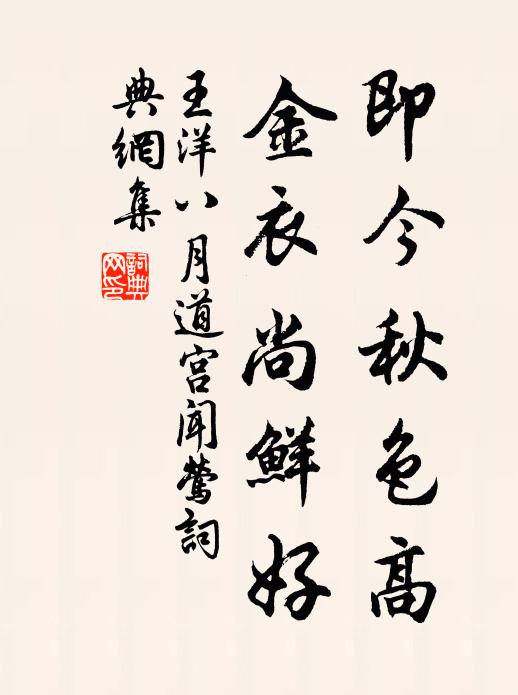 即今秋色高
金衣尚鮮好
王洋八月道宮聞鶯詞
典網集
詞典网印